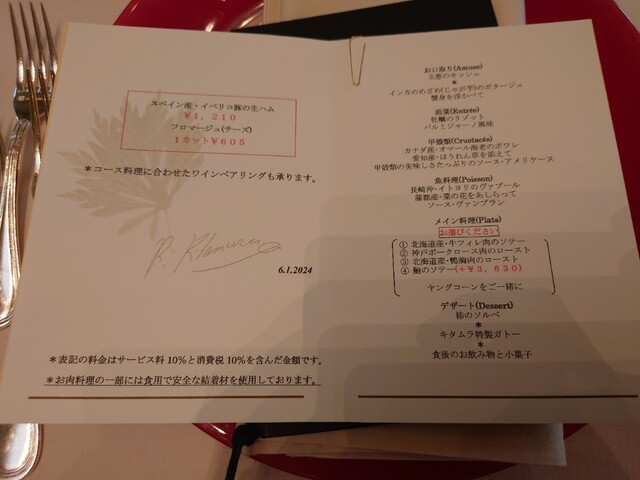 スペイン産・イベリコ豚の生ハム
¥1,210
フロマージュ(チーズ)
1カット¥605
＊コース料理に合わせたワインペアリングも承ります。
6.1.2024
＊表記の料金はサービス料10%と消費税10%を含んだ金額です。
＊お肉料理の一部には食用で安全な結着材を使用しております。
お口取り(Amuse)
玉葱のキッシュ
＊
インカのめざめ(じゃが芋)のポタージュ
蟹身を浮かべて
前菜(Entrée)
牡蠣のリゾット
パルミジャーノ風味
甲殻類(Crustacés)
カナダ産・オマール海老のポワレ
愛知産・ほうれん草を添えて
甲殻類の美味しさたっぷりのソース・アメリケーヌ
魚料理(Poisson)
長崎沖・イトヨリのヴァプール
蒲郡産・菜の花をあしらって
ソース・ヴァンブラン
メイン料理(Plats)
お選びください
① 北海道産・牛フィレ肉のソテー
② 神戸ポークロース肉のロースト
③ 北海道産・鴨胸肉のロースト
④ 鮑のソテー(+¥3,630)
ヤングコーンをご一緒に
デザート(Dessert)
柿のソルベ
＊
キタムラ特製ガトー
＊
食後のお飲み物と小菓子